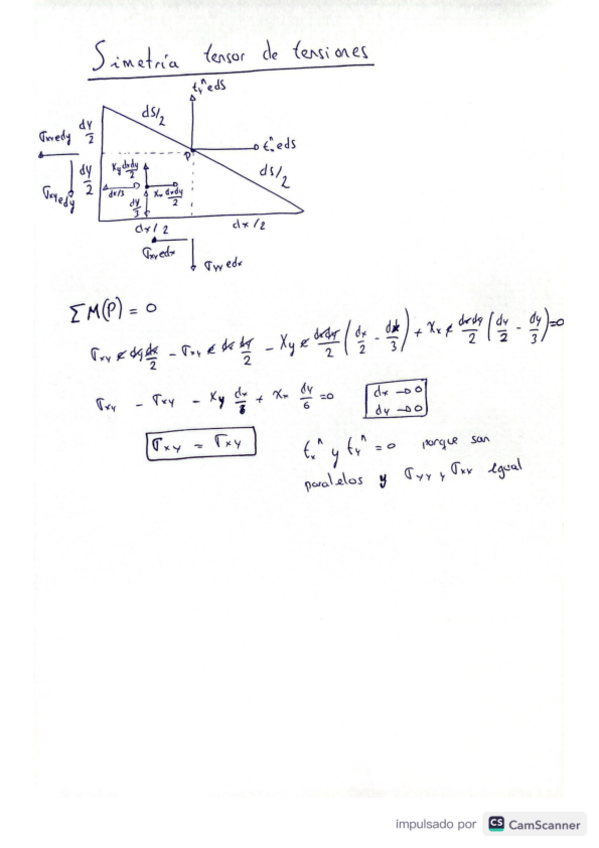 Simetría tensor de tensiones
t_y^n eds
ds/2
dy/2
σxx edy
P
t_x^n eds
dy/2
Xy dxdy/2
ds/2
σxy edy
dx/3
Xx dxdy/2
dy/3
dx/2
dx/2
σxy edx
σyy edx
ΣM(P) = 0
σxy e dy dx/2 - σxy e dx dy/2 - Xy e dxdy/2 (dx/2 - dx/3) + Xx e dxdy/2 (dy/2 - dy/3) = 0
σxy - σxy - Xy dx/6 + Xx dy/6 = 0
dx → 0
dy → 0
σxy = σxy
t_x^n y t_y^n = 0 porque son
paralelos y σyy y σxx igual
impulsado por CS CamScanner